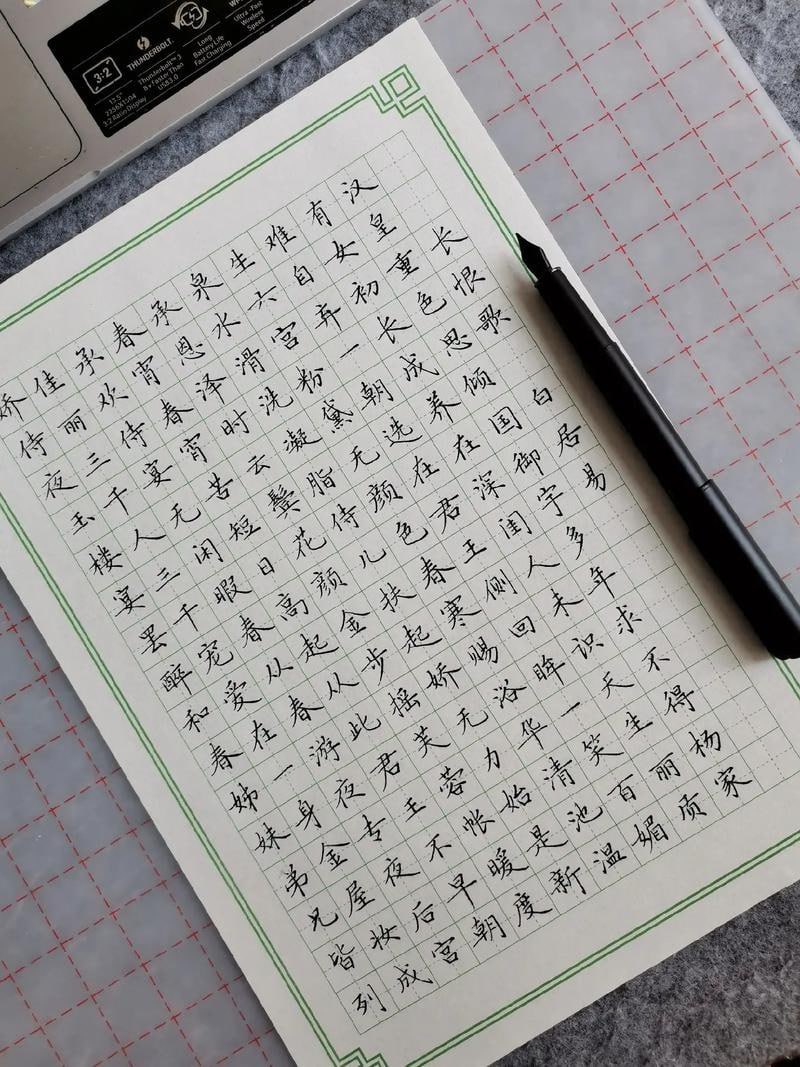 长恨歌 白居易
汉皇重色思倾国御宇多年求不得杨家
有女初长成养在深闺人未识天生丽质
难自弃一朝选在君王侧回眸一笑百媚
生六宫粉黛无颜色春寒赐浴华清池温
泉水滑洗凝脂侍儿扶起娇无力始是新
承恩泽时云鬓花颜金步摇芙蓉帐暖度
春宵春宵苦短日高起从此君王不早朝
承欢侍宴无闲暇春从春游夜专夜后宫
佳丽三千人三千宠爱在一身金屋妆成
娇侍夜玉楼宴罢醉和春姊妹弟兄皆列
3:2
13.5"
2256X1504
3:2 Ratio Display
THUNDERBOLT™
Thunderbolt™ 3
8× Faster Than
USB3.0
Long
Battery Life
Fast Charging
Ultra-Fast
Wireless
Speed